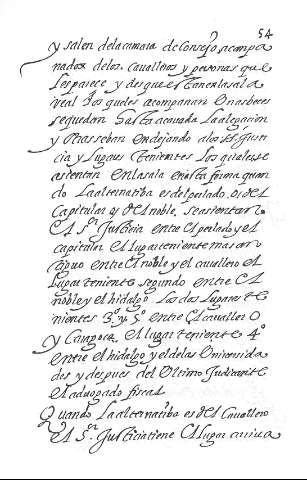 54
y salen dela camara de Consejo acompa
nados delos cavalleros y personas que
les parece y desque estan en la sala
real los queles acompañan unas beces
se quedan hasta acavada la alegacion
y otras se ban en dejando a los ss. Justi
cia y lugares tenientes los quales se
asientan en la sala en esta forma quan
do La alternatiba es del perlado, o del
Capitular y del noble, se asienta el
El s.r Justicia entre el perlado y el
capitular El lugarteniente mas an
tiguo entre el noble y el cavallero El
lugarteniente segundo entre el
noble y el hidalgo Los dos lugares te
nientes 3.º y 5.º entre el cavallero
y Campo el lugarteniente 4.º
entre el hidalgo y el delas Universida
des y despues del ultimo Judicante
el advogado fiscal
Quando La alternatiba es del Cavallero
El s.r Justicia tiene el lugar arriva